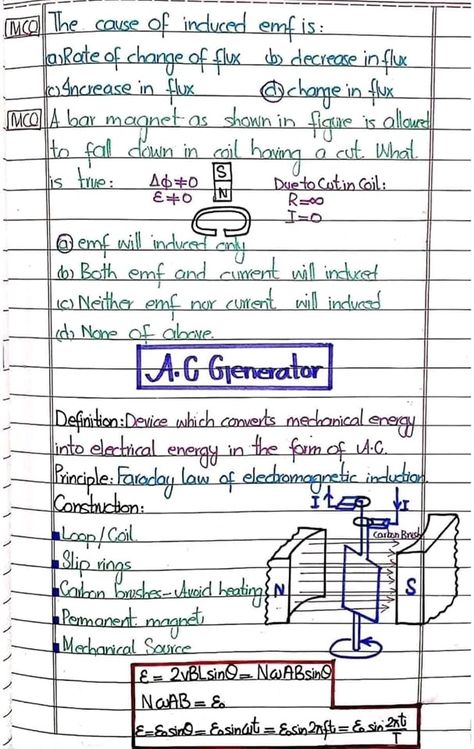 MCQ The cause of induced emf is:
(a) Rate of change of flux (b) decrease in flux
(c) Increase in flux (d) change in flux
MCQ A bar magnet as shown in figure is allowed
to fall down in coil having a cut. What
is true: Δϕ≠0 S Due to Cut in Coil:
ε≠0 N R=∞
I=0
(a) emf will induced only
(b) Both emf and current will induced
(c) Neither emf nor current will induced
(d) None of above.
A.C Generator
Definition: Device which converts mechanical energy
into electrical energy in the form of A.C.
Principle: Faraday law of electromagnetic induction.
Construction: I I
Loop/Coil Carbon Brush
Slip rings
Carbon brushes - Avoid heating N S
Permanent magnet
Mechanical Source
ε = 2vBLsinθ = NωABsinθ
NωAB = ε₀
ε=ε₀sinθ = ε₀sinωt = ε₀sin2πft = ε₀ sin 2πt/T